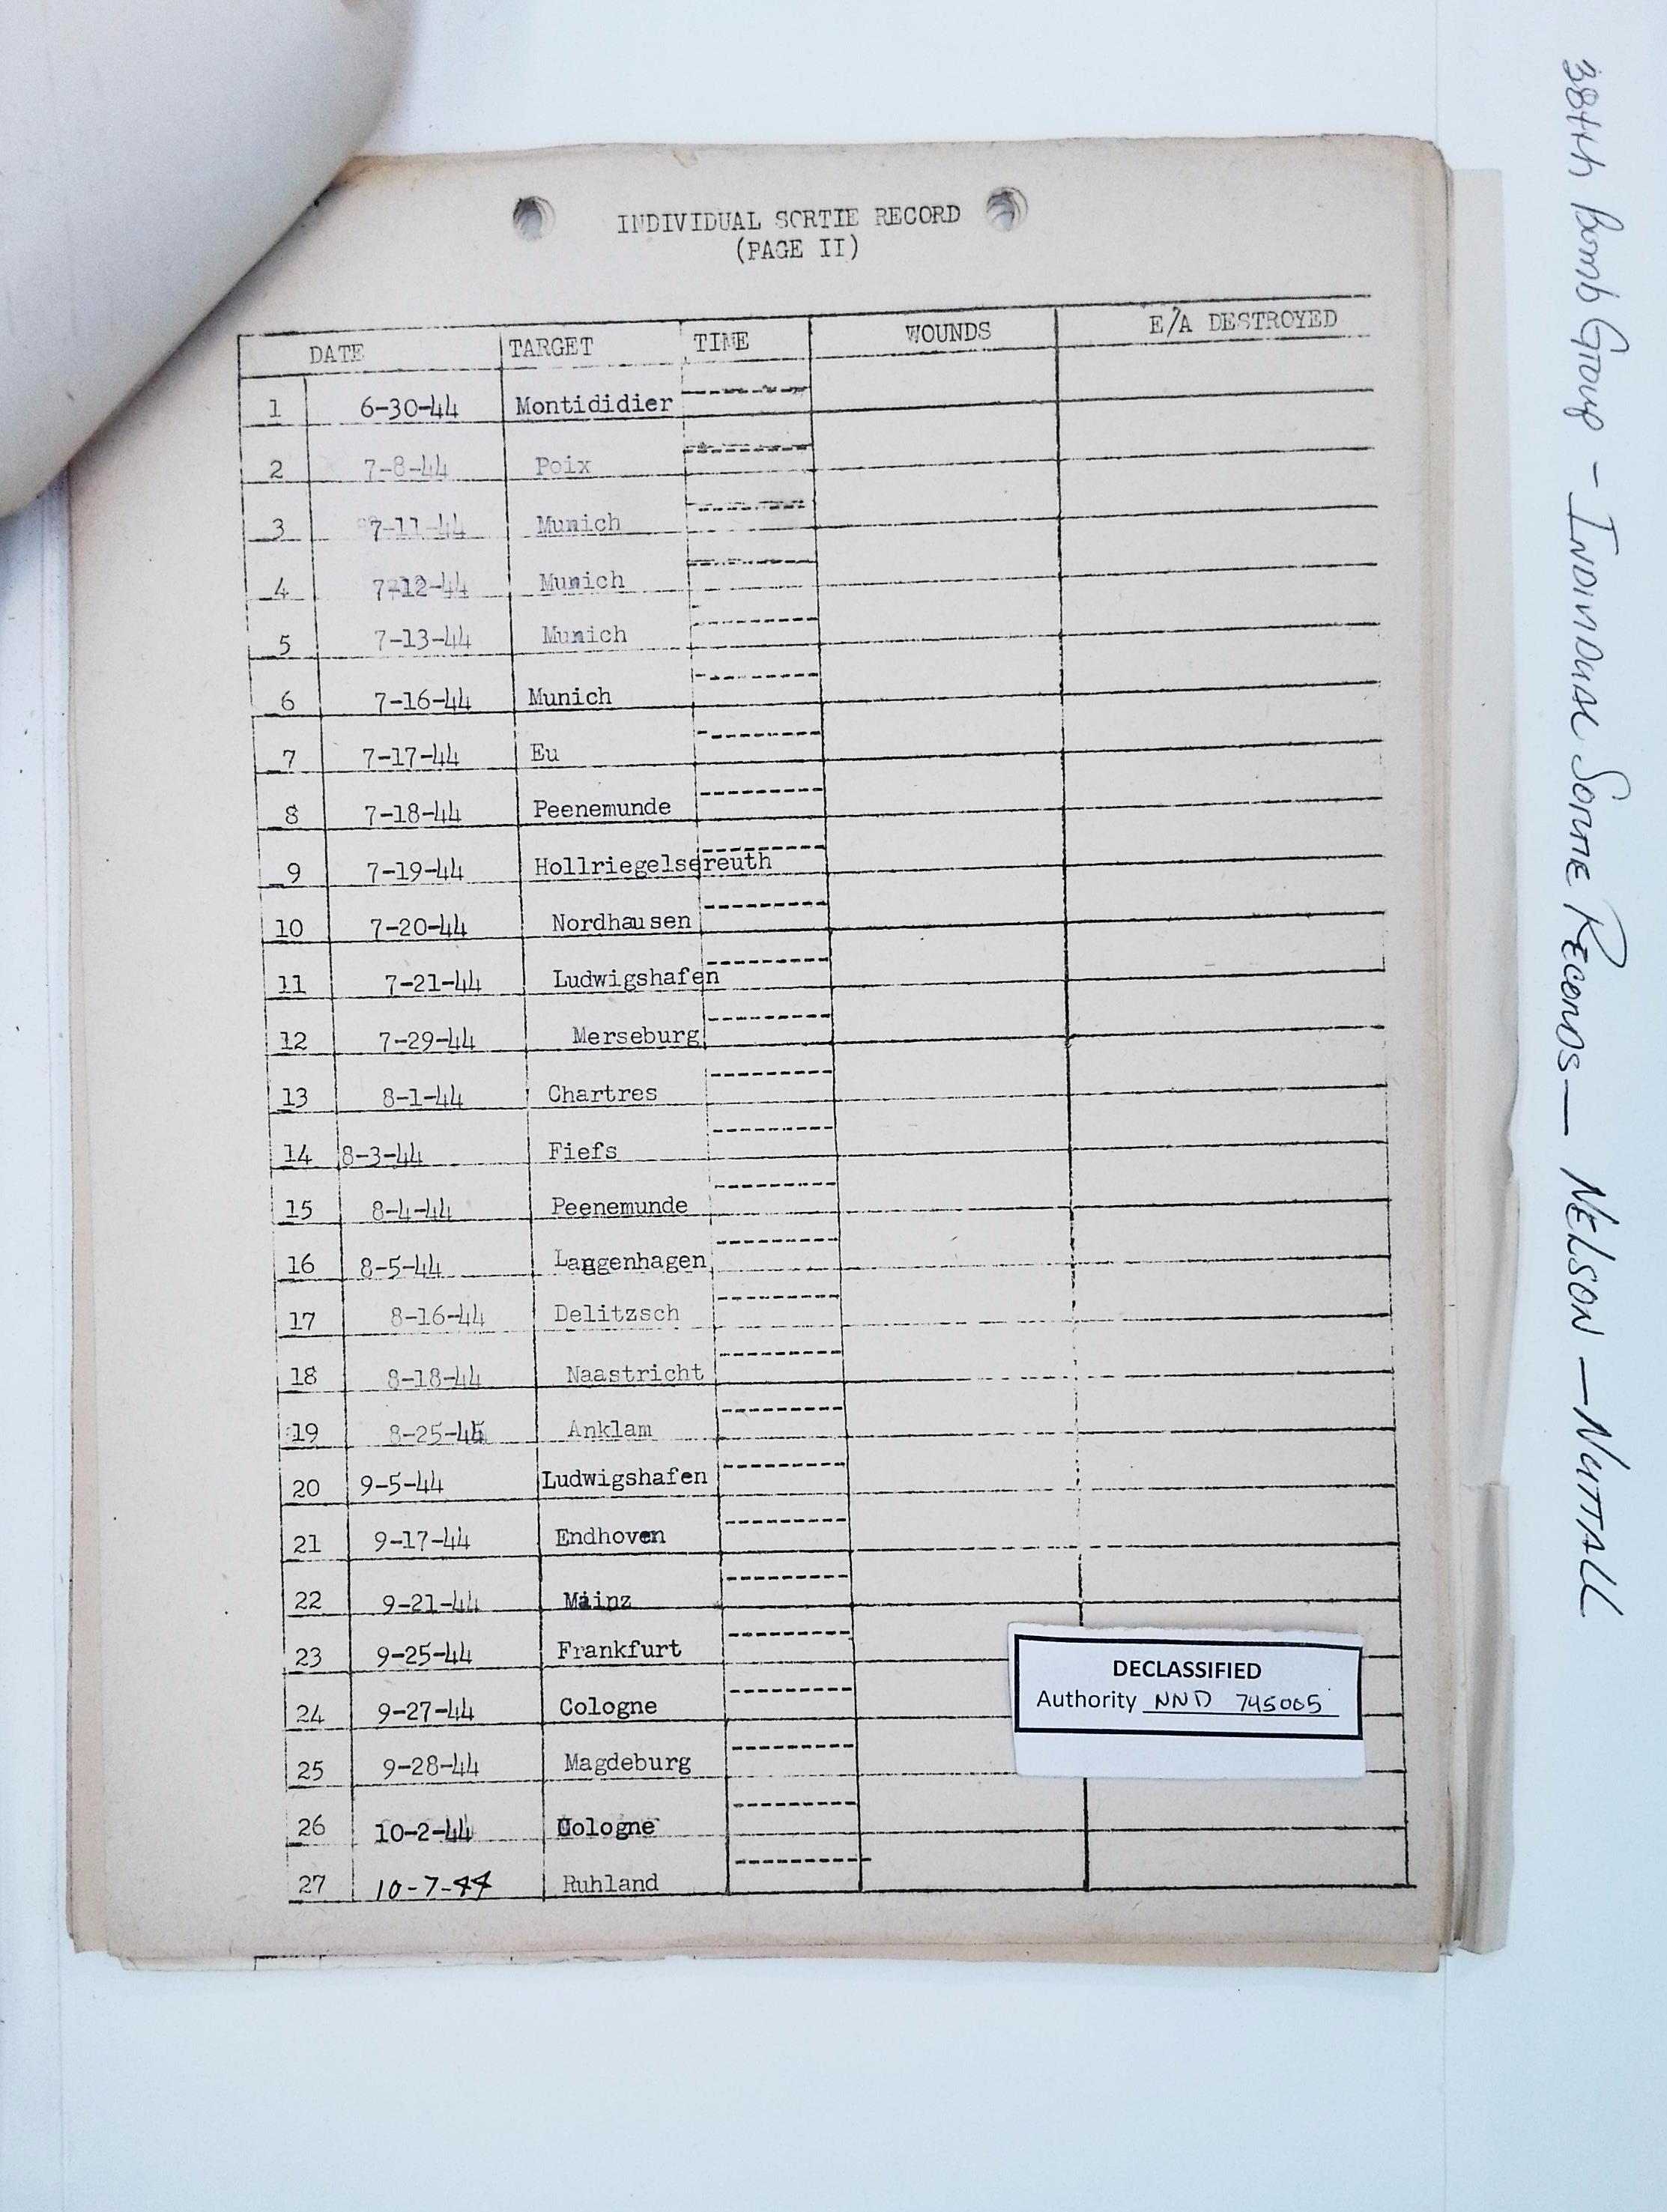 INDIVIDUAL SORTIE RECORD
(PAGE II)
DATE TARGET TIME WOUNDS E/A DESTROYED
1 6-30-44 Montididier ---------
2 7-8-44 Poix ---------
3 7-11-44 Munich ---------
4 7-12-44 Munich ---------
5 7-13-44 Munich ---------
6 7-16-44 Munich ---------
7 7-17-44 Eu ---------
8 7-18-44 Peenemunde ---------
9 7-19-44 Hollriegelsereuth ---------
10 7-20-44 Nordhausen ---------
11 7-21-44 Ludwigshafen ---------
12 7-29-44 Merseburg ---------
13 8-1-44 Chartres ---------
14 8-3-44 Fiefs ---------
15 8-4-44 Peenemunde ---------
16 8-5-44 Langenhagen ---------
17 8-16-44 Delitzsch ---------
18 8-18-44 Naastricht ---------
19 Anklam ---------
20 9-5-44 Ludwigshafen ---------
21 9-17-44 Endhoven ---------
22 9-21-44 Mainz ---------
23 9-25-44 Frankfurt ---------
24 9-27-44 Cologne ---------
25 9-28-44 Magdeburg ---------
26 10-2-44 Cologne ---------
27 10-7-44 Ruhland ---------
DECLASSIFIED
Authority NND 745005
384th Bomb Group - Individual Sortie Records - NELSON - NUTTALL